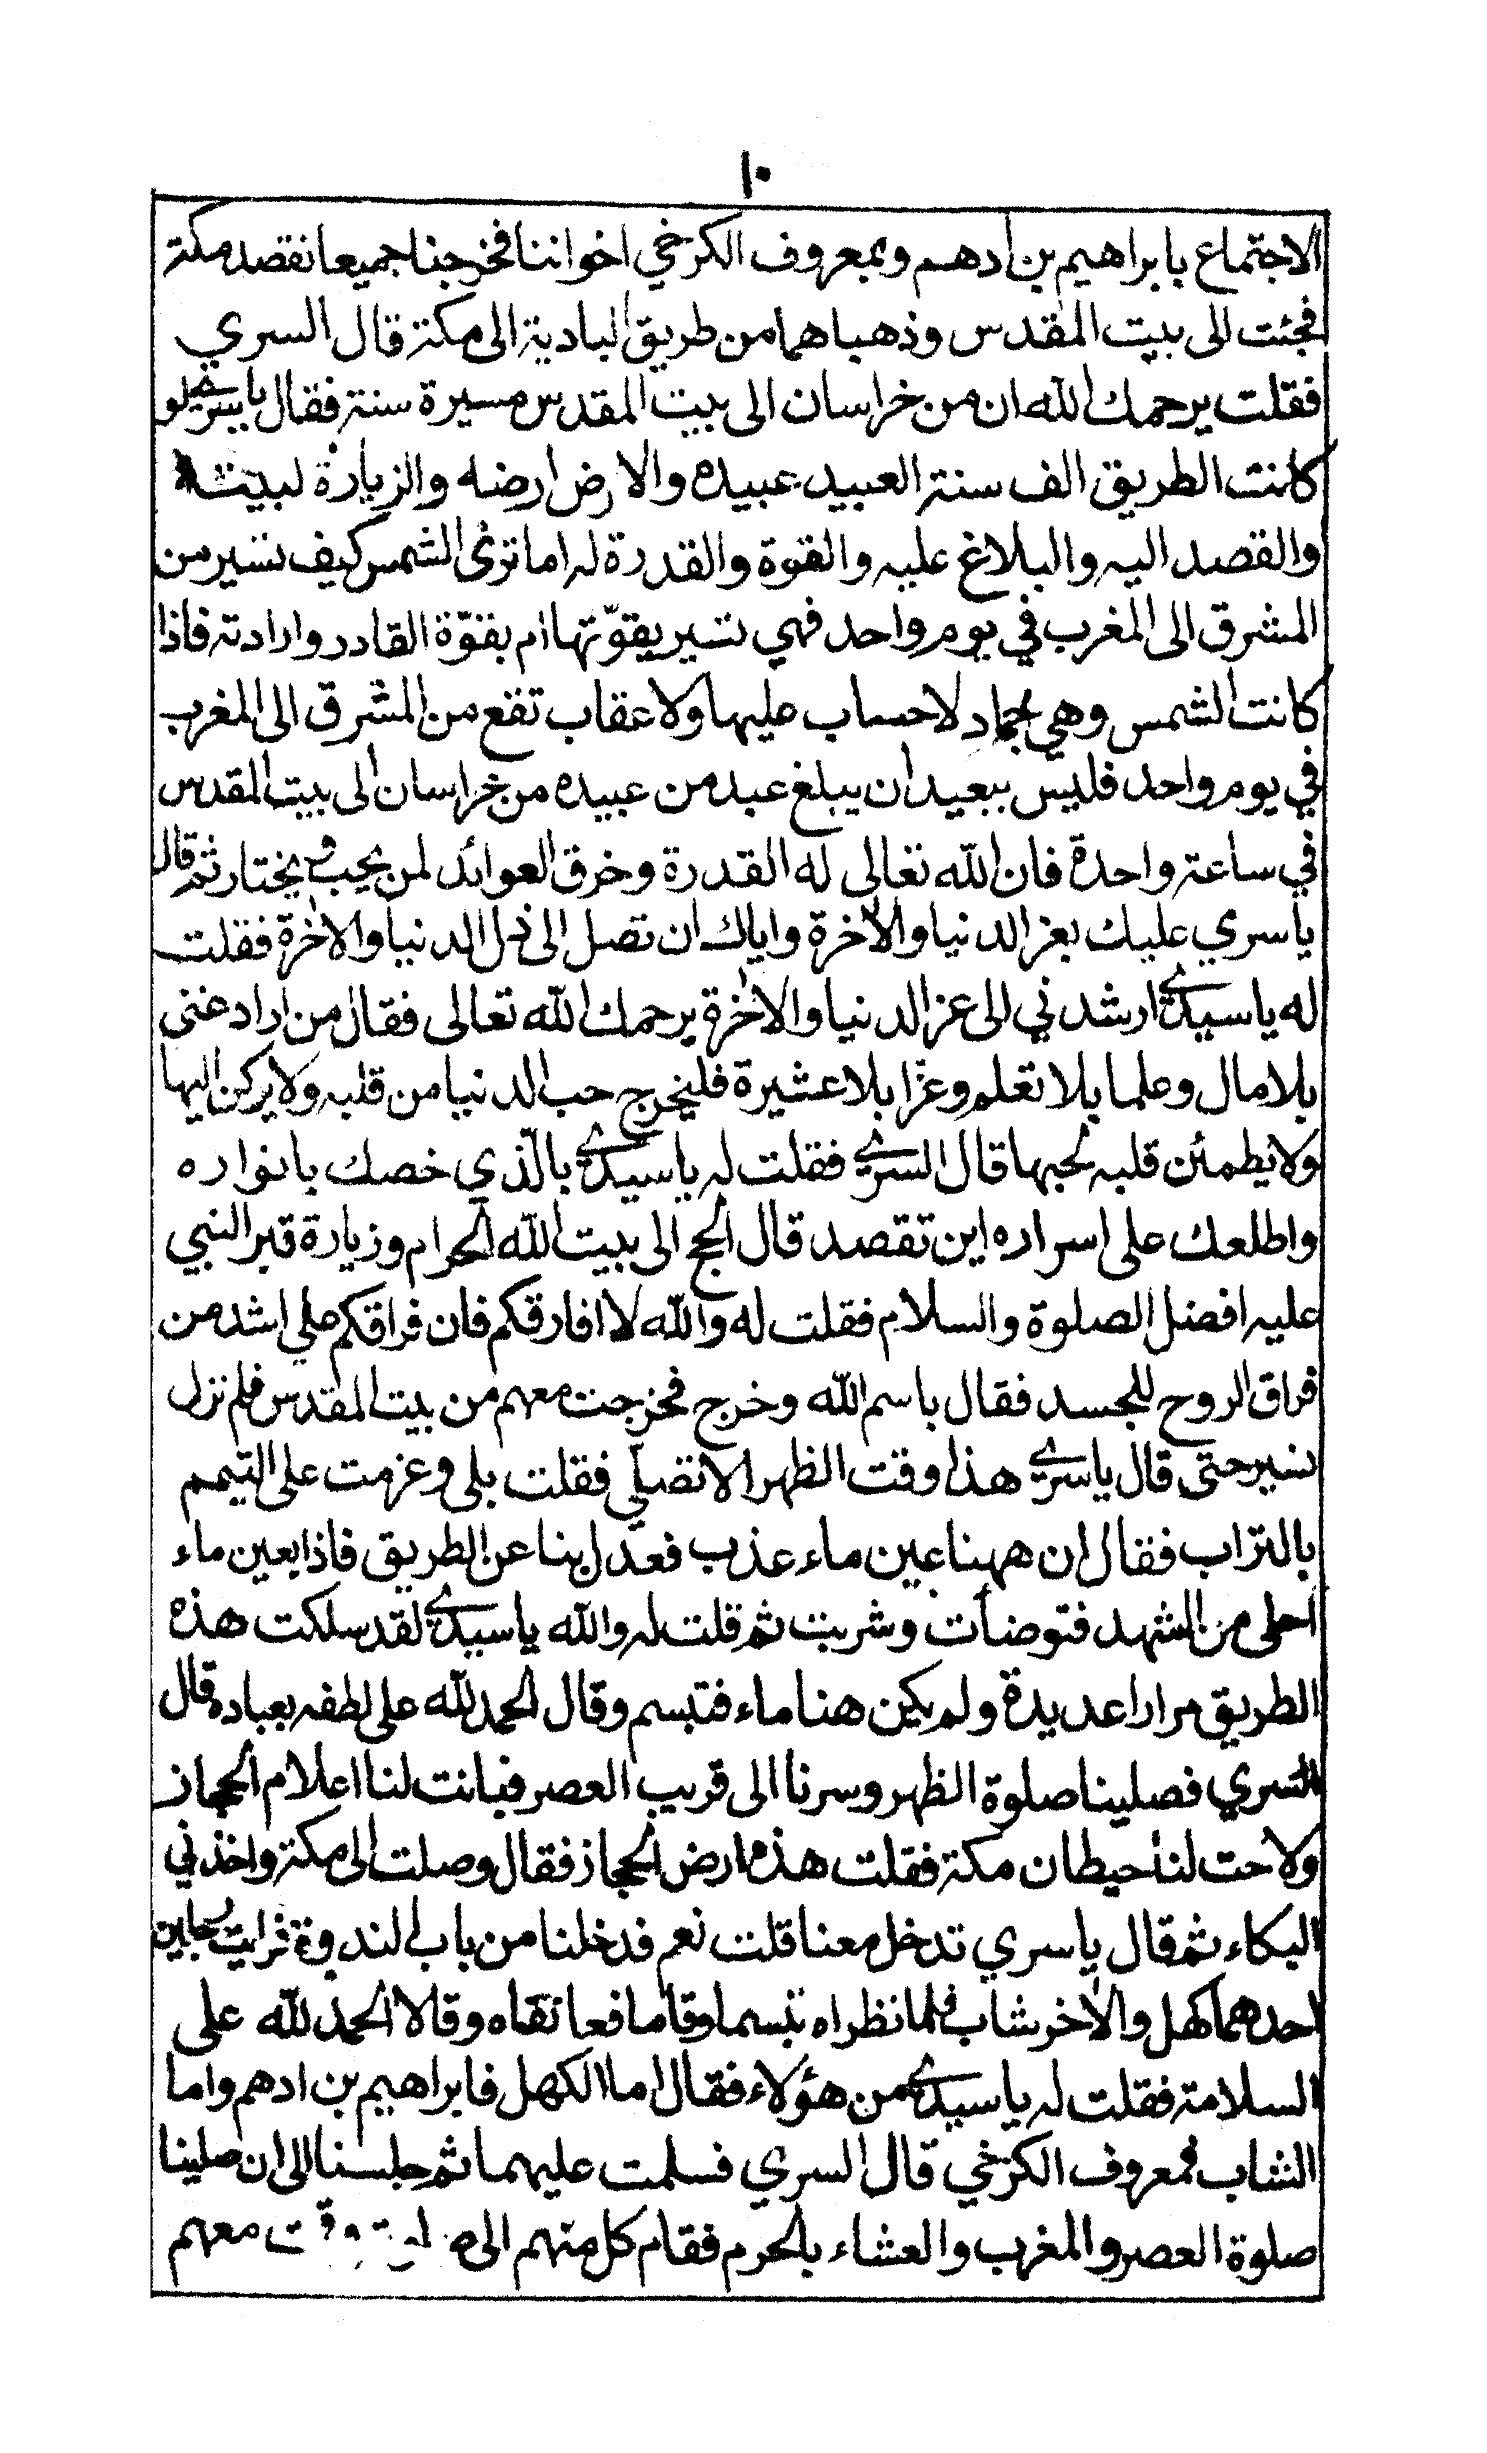 ١٠
الاجتماع بابراهيم بن ادهم وبمعروف الكرخي اخواننا فخرجنا جميعا نقصد مكة
فجئت الى بيت المقدس وذهبا هما من طريق البادية الى مكة قال السري
فقلت يرحمك الله ان من خراسان الى بيت المقدس مسيرة سنة فقال يا سري لو
كانت الطريق الف سنة العبيد عبيده والارض ارضه والزيارة لبيته
والقصد اليه والبلاغ عليه والقوة والقدرة له اما ترى الشمس كيف تسير من
المشرق الى المغرب في يوم واحد فهي تسير بقوّتها ام بقوّة القادر وارادته فاذا
كانت الشمس وهي جماد لا حساب عليها ولا عقاب تقع من المشرق الى المغرب
في يوم واحد فليس ببعيد ان يبلغ عبد من عبيده من خراسان الى بيت المقدس
في ساعة واحدة فان الله تعالى له القدرة وخرق العوائد لمن يحب ويختار ثم قال
يا سري عليك بعز الدنيا والاخرة واياك ان تصل الى ذل الدنيا والاخرة فقلت
له يا سيدي ارشدني الى عز الدنيا والاخرة يرحمك الله تعالى فقال من اراد غنى
بلا مال وعلما بلا تعلم وعزا بلا عشيرة فليخرج حب الدنيا من قلبه ولا يركن اليها
ولا يطمئن قلبه لحبها قال السري فقلت له يا سيدي بالذي خصك بانواره
واطلعك على اسراره اين تقصد قال الحج الى بيت الله الحرام وزيارة قبر النبي
عليه افضل الصلوة والسلام فقلت له والله لا افارقكم فان فراقكم علي اشد من
فراق الروح للجسد فقال باسم الله وخرج فخرجت معهم من بيت المقدس فلم نزل
نسير حتى قال يا سري هذا وقت الظهر الا تصلّي فقلت بلى وعزمت على التيمم
بالتراب فقال ان ههنا عين ماء عذب فعدل بنا عن الطريق فاذا بعين ماء
احلى من الشهد فتوضأت وشربت ثم قلت له والله يا سيدي لقد سلكت هذه
الطريق مرارا عديدة ولم يكن هنا ماء فتبسم وقال الحمد لله على لطفه بعباده قال
السري فصلينا صلوة الظهر وسرنا الى قريب العصر فبانت لنا اعلام الحجاز
ولاحت لنا حيطان مكة فقلت هذه ارض الحجاز فقال وصلت الى مكة واخذني
البكاء ثم قال يا سري تدخل معنا قلت نعم فدخلنا من باب الندوة فرايت رجلين
احدهما كهل والاخر شاب فلما نظراه تبسما وقاما فعانقاه وقالا الحمد لله على
السلامة فقلت له يا سيدي من هؤلاء فقال اما الكهل فابراهيم بن ادهم واما
الشاب فمعروف الكرخي قال السري فسلمت عليهما ثم جلسنا الى ان صلينا
صلوة العصر والمغرب والعشاء بالحرم فقام كل منهم الى معهم